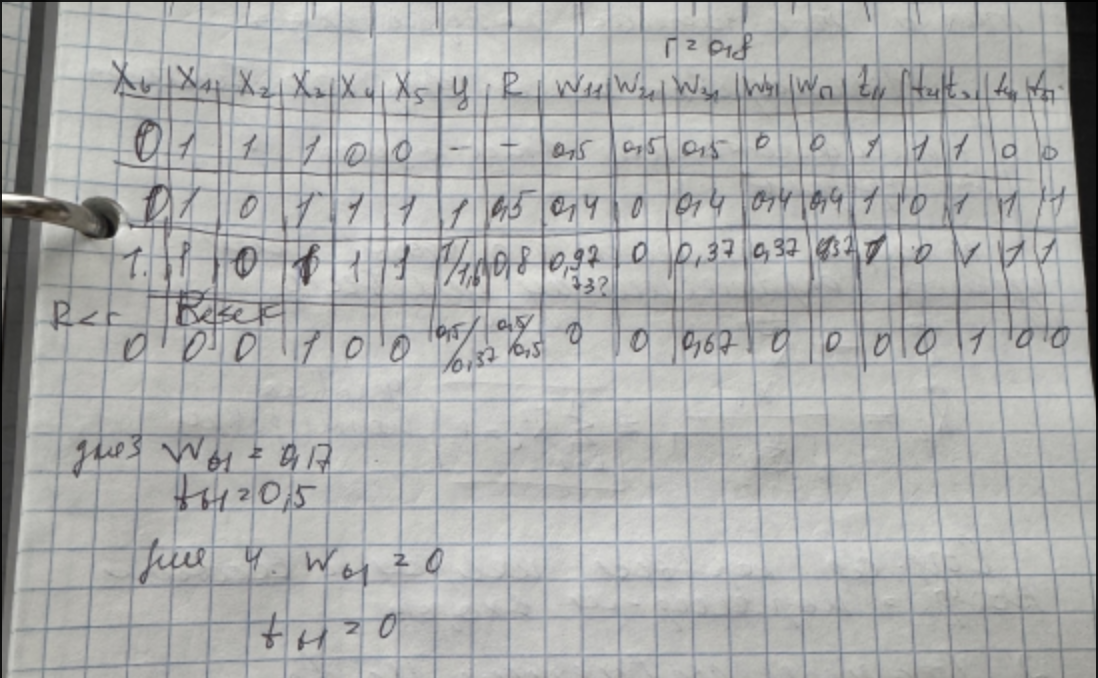 r = 0,8
X6 X1 X2 X3 X4 X5 y R W11 W21 W31 W41 W51 t11 t21 t31 t41 t51
0 1 1 1 0 0 - - 0,5 0,5 0,5 0 0 1 1 1 0 0
0 1 0 1 1 1 1 0,5 0,4 0 0,4 0,4 0,4 1 0 1 1 1
1. 1 0 1 1 1 1/1,6 0,8 0 0,37 0,37 0 1 1 1
33?
R<r Reset
0 0 0 1 0 0 0,5/0,37 0,5/0,5 0 0 0,67 0 0 0 0 1 0 0
для 3 W61 = 0,17
t61 = 0,5
для 4. W61 = 0
t61 = 0